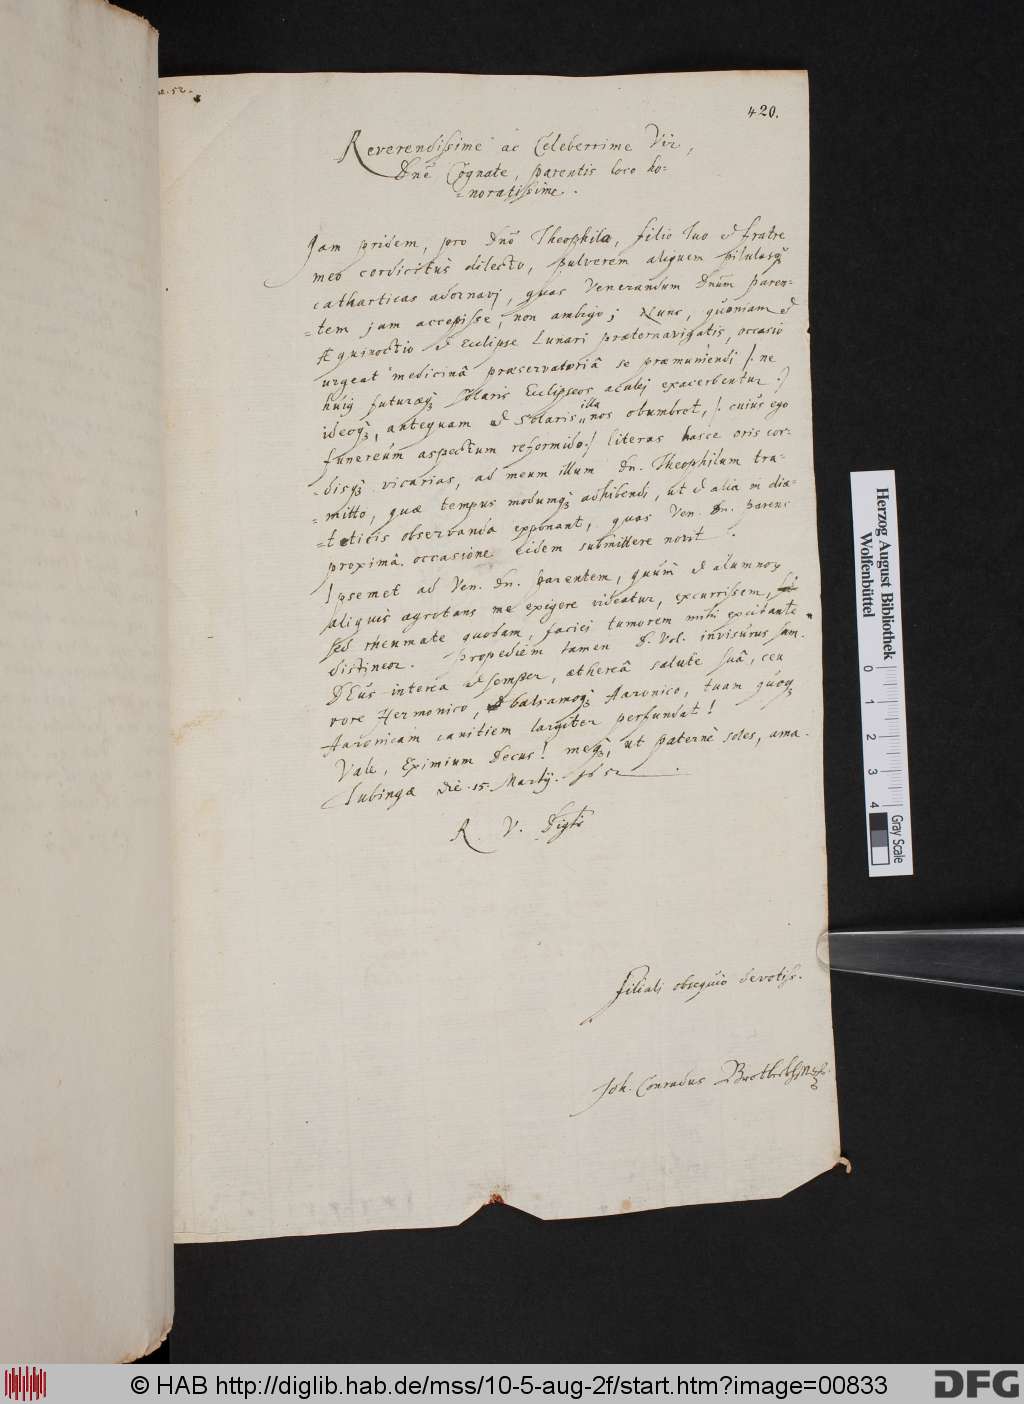 420.
Reverendissime ac Celeberrime Vir,
Dnē Cognate, parentis loco ho-
-noratissime.
Jam pridem, pro Dnō Theophilo, filio tuo et fratre
meo cordicitùs dilecto, pulverem aliquem pilulasq́
catharticas adornavi, quas Venerandum Dnūm paren-
-tem jam accepisse, non ambigo; Nunc, quoniam et
Æquinoctio et Ecclipse Lunari præternavigatis, occasio
urgeat medicinâ præservatoriâ se præmuniendi /: ne
huiq futuræq́ Solaris Ecclipseos aculej exacerbentur :/
ideoq́, antequam et Solaris illa nos obumbret, /: cuius ego
funereum aspectum reformido :/ literas hasce oris cor-
-disq́ vicarias, ad meum illum Dn. Theophilum tra-
-mitto, quæ tempus modumq́ adhibendi, ut et alia in diæ-
-teticis observanda exponant, quas Ven. Dn. parens
proximâ occasione eidem submittere novit.
Ipsemet ad Ven. Dn. parentem, quùm et alumnoꝝ
aliquis ægrotans me expetere videatur, excurrissem,
sed rheumate quodam, faciei tumorem mihi excitante
distineor. Propediem tamen D. Vol. invisurus sum.
DEus interea et semper, æthereâ salute suâ, ceu
rore Hermonico, et balsamoq́ Aaronico, tuam quoq́
Aaronicam canitiem largiter perfundat!
Vale, Eximium Decus! meq́, ut paternè soles, ama.
Tubingæ die 15. Martij. 1652
R. V. Digtis
Filiali obsequio devotiss.
Joh. Conradus
Herzog August Bibliothek
Wolfenbüttel
0 1 2 3 4
Gray Scale
© HAB http://diglib.hab.de/mss/10-5-aug-2f/start.htm?image=00833
DFG